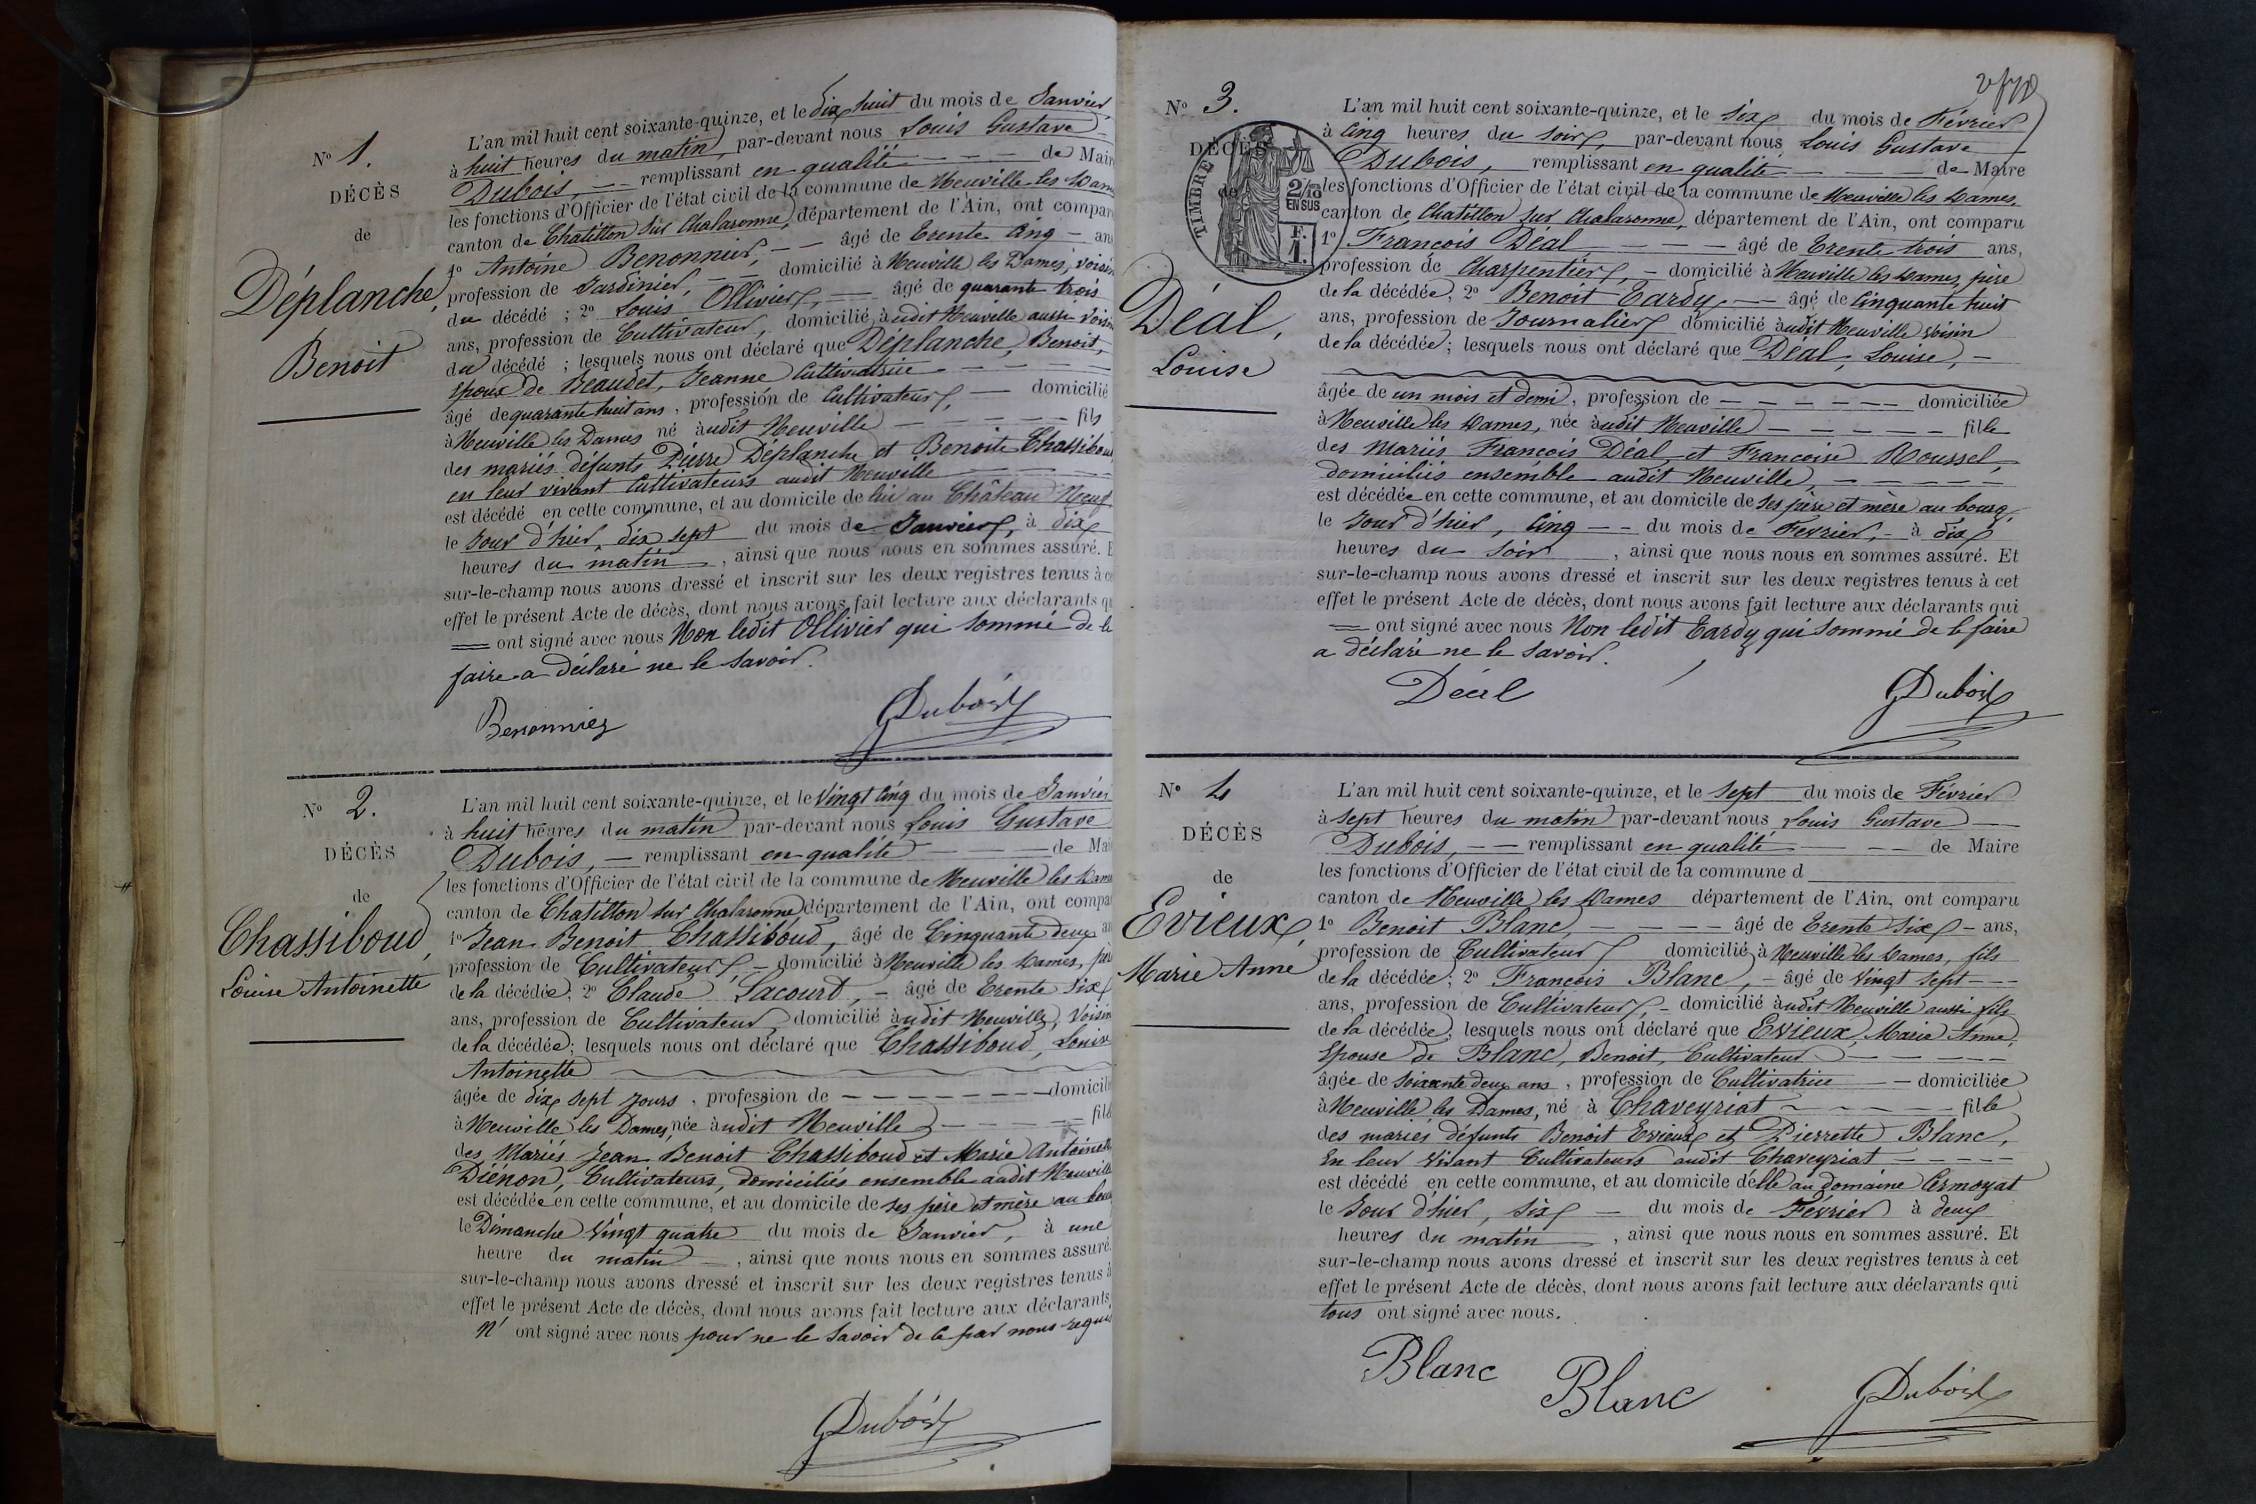 N° 1.
DÉCÈS
de
Déplanche,
Benoit
L'an mil huit cent soixante-quinze, et le dix huit du mois de Janvier
à huit heures du matin, par-devant nous Louis Gustave
Dubois, — remplissant en qualité — — — de Mair
les fonctions d'Officier de l'état civil de la commune de Neuville les Dam
canton de Chatillon sur Chalaronne, département de l'Ain, ont compar
1° Antoine Benonnier, — — âgé de trente cinq — an
profession de Jardinier, — — domicilié à Neuville les Dames, voisin
du décédé ; 2° Louis Ollivier, — âgé de quarante trois
ans, profession de Cultivateur, domicilié audit Neuville aussi voisin
du décédé ; lesquels nous ont déclaré que Déplanche, Benoit,
époux de Beaudet, Jeanne Cultivatrice — — — —
âgé de quarante huit ans, profession de Cultivateur, — domicilié
à Neuville les Dames né audit Neuville — — — — — fils
des mariés défunts Pierre Déplanche et Benoite Chassibou
en leur vivant Cultivateurs audit Neuville
est décédé en cette commune, et au domicile de lui au Château Neuf
le jour d'hier, dix sept du mois de Janvier, à dix
heures du matin, ainsi que nous nous en sommes assuré. E
sur-le-champ nous avons dressé et inscrit sur les deux registres tenus à ce
effet le présent Acte de décès, dont nous avons fait lecture aux déclarants qu
= ont signé avec nous Non ledit Ollivier qui sommé de le
faire a déclaré ne le savoir.
Benonnier GDubois
N° 2.
DÉCÈS
de
Chassiboud,
Louise Antoinette
L'an mil huit cent soixante-quinze, et le vingt cinq du mois de Janvier
à huit heures du matin par-devant nous Louis Gustave
Dubois, — remplissant en qualité — — — de Mai
les fonctions d'Officier de l'état civil de la commune de Neuville les Dame
canton de Chatillon sur Chalaronne, département de l'Ain, ont compa
1° Jean Benoit Chassiboud, âgé de Cinquante deux an
profession de Cultivateur, — domicilié à Neuville les Dames, pèr
de la décédée; 2° Claude Lacourt, — âgé de trente six
ans, profession de Cultivateur, domicilié audit Neuville, voisin
de la décédée; lesquels nous ont déclaré que Chassiboud, Louise
Antoinette
âgée de dix sept jours, profession de — — — — — — — domicili
à Neuville les Dames, née audit Neuville — — — — — fill
des Mariés Jean Benoit Chassiboud et Marie Antoinett
Diénon, Cultivateurs, domiciliés ensemble audit Neuville
est décédée en cette commune, et au domicile de ses père et mère au bour
le Dimanche vingt quatre du mois de Janvier, à une
heure du matin —, ainsi que nous nous en sommes assuré.
sur-le-champ nous avons dressé et inscrit sur les deux registres tenus à
effet le présent Acte de décès, dont nous avons fait lecture aux déclarants
n' ont signé avec nous pour ne le savoir de ce par nous requis
GDubois
N° 3.
DÉCÈS
de
TIMBRE
2/10
EN SUS
F.
1.
Déal,
Louise
L'an mil huit cent soixante-quinze, et le six du mois de Février
à cinq heures du soir, par-devant nous Louis Gustave
Dubois, remplissant en qualité — — — de Maire
les fonctions d'Officier de l'état civil de la commune de Neuville les Dames,
canton de Chatillon sur Chalaronne, département de l'Ain, ont comparu
1° François Déal — — — — âgé de trente trois ans,
profession de Charpentier, — domicilié à Neuville les Dames, père
de la décédée; 2° Benoit Tardy — âgé de cinquante huit
ans, profession de Journalier domicilié audit Neuville voisin
de la décédée; lesquels nous ont déclaré que Déal, Louise, —
âgée de un mois et demi, profession de — — — — — — domiciliée
à Neuville les Dames, née audit Neuville — — — — — fille
des Mariés François Déal et Françoise Roussel,
domiciliés ensemble audit Neuville, — — — — —
est décédée en cette commune, et au domicile de ses père et mère au bourg,
le jour d'hier, cinq — — du mois de Février, — à dix
heures du soir, ainsi que nous nous en sommes assuré. Et
sur-le-champ nous avons dressé et inscrit sur les deux registres tenus à cet
effet le présent Acte de décès, dont nous avons fait lecture aux déclarants qui
= ont signé avec nous Non ledit Tardy qui sommé de le faire
a déclaré ne le savoir.
Déal GDubois
N° 4
DÉCÈS
de
Evieux,
Marie Anne
L'an mil huit cent soixante-quinze, et le sept du mois de Février
à sept heures du matin par-devant nous Louis Gustave —
Dubois, — — remplissant en qualité — — — de Maire
les fonctions d'Officier de l'état civil de la commune d
canton de Neuville les Dames département de l'Ain, ont comparu
1° Benoit Blanc, — — — — âgé de trente six — ans,
profession de Cultivateur domicilié à Neuville les Dames, fils
de la décédée; 2° François Blanc, — âgé de vingt sept — —
ans, profession de Cultivateur, — domicilié audit Neuville aussi fils
de la décédée; lesquels nous ont déclaré que Evieux, Marie Anne,
épouse de Blanc, Benoit, Cultivateur — — — — —
âgée de soixante deux ans, profession de Cultivatrice — domiciliée
à Neuville les Dames, né à Chaveyriat — — — — — fille
des mariés défunts Benoit Evieux et Pierrette Blanc,
en leur vivant Cultivateurs audit Chaveyriat — — — — —
est décédé en cette commune, et au domicile d'elle au domaine Cermoyat
le jour d'hier, six — du mois de Février à deux
heures du matin, ainsi que nous nous en sommes assuré. Et
sur-le-champ nous avons dressé et inscrit sur les deux registres tenus à cet
effet le présent Acte de décès, dont nous avons fait lecture aux déclarants qui
tous ont signé avec nous.
Blanc Blanc GDubois